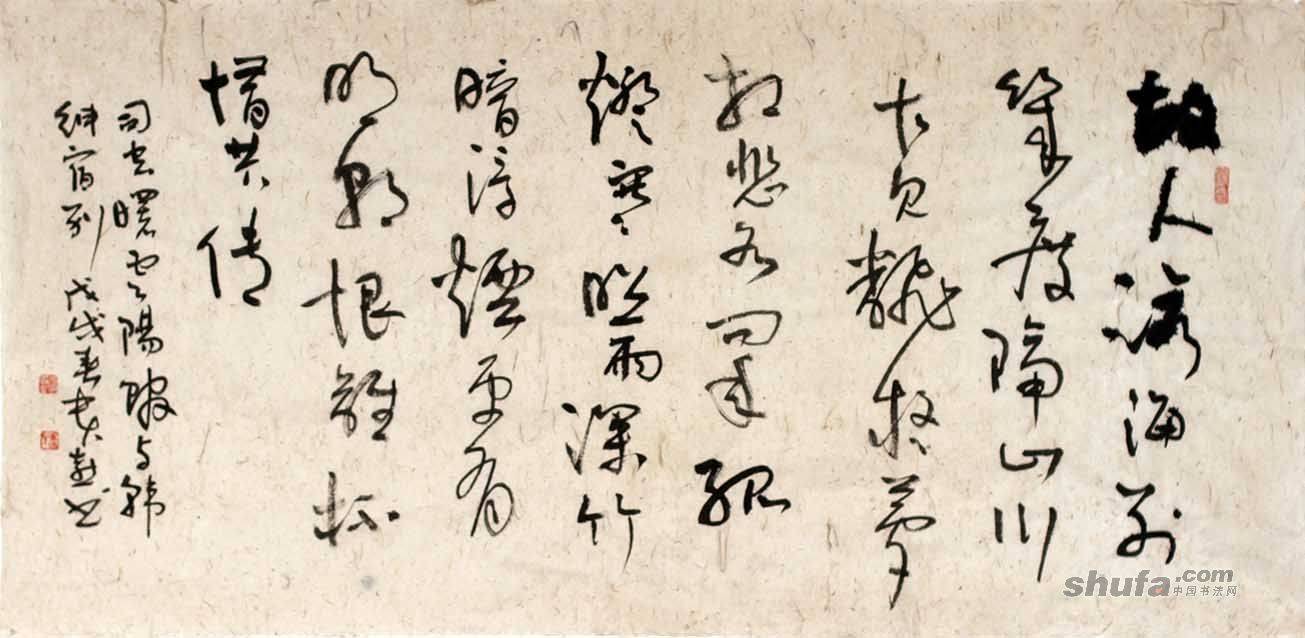 故人海别
幾度隔山川
乍见翻疑梦
相悲各问年孤
燈寒照雨深竹
暗浮煙更有
明朝恨離杯
惜共传
司空曙云陽館与韩
绅宿别 戊戌春书
shufa.com
中国书法网